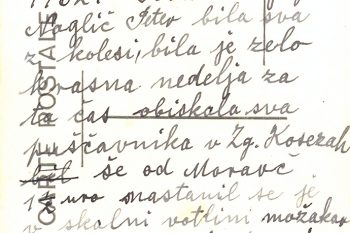 Naglič Peter bila sva
z kolesi, bila je zelo
krasna nedelja za
ta čas obiskala sva
puščavnika v Zg. Kosezah
še od Moravč
1 uro nastanil se je
v skalni votlini možakar
CARTE POSTALE